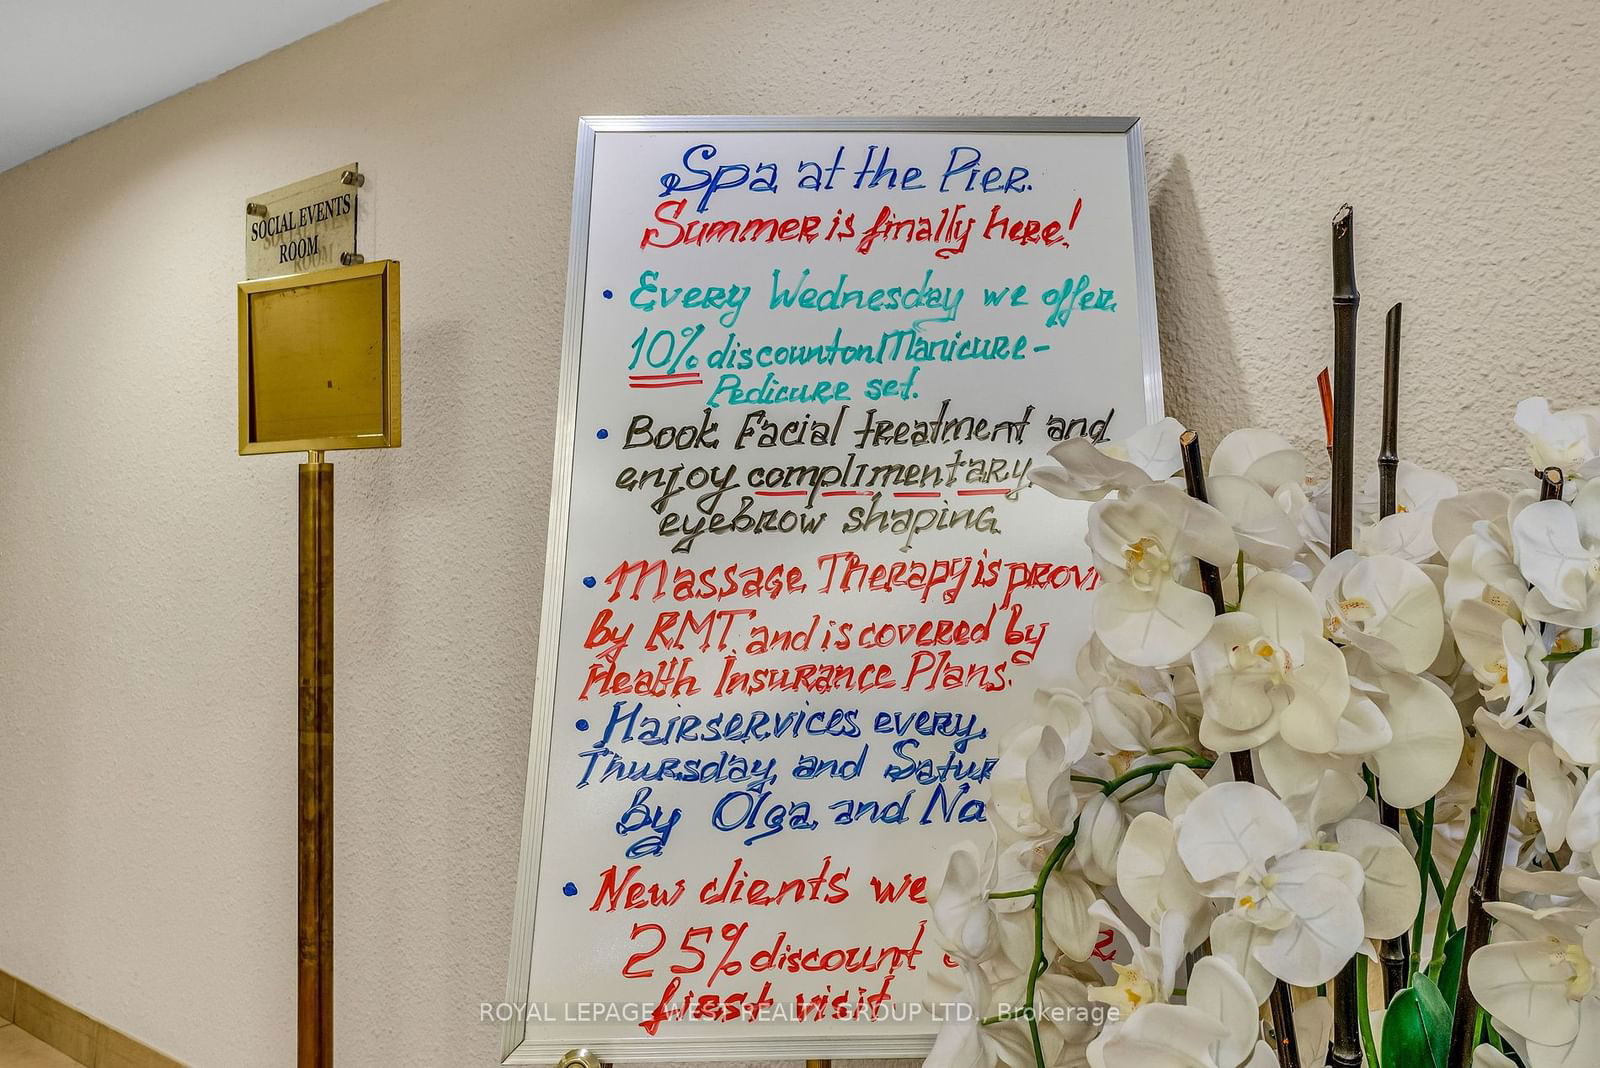 SOCIAL EVENTS
ROOM
Spa at the Pier.
Summer is finally here!
• Every Wednesday we offer
10% discount on Manicure-
Pedicure set.
• Book Facial treatment and
enjoy complimentary
eyebrow shaping.
• Massage Therapy is provi
By RMT and is covered by
Health Insurance Plans.
• Hair services every
Thursday and Satur
By Olga and Na
• New clients we
25% discount
first visit
ROYAL LEPAGE WEST REALTY GROUP LTD., Brokerage